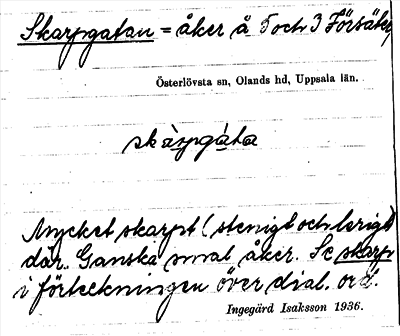 Skarpgatan = åker å 5 och 3 Försäter
Österlövsta sn, Olands hd, Uppsala län.
skàrpgáta
Mycket skarpt (stenigt och lerigt
där. Ganska smal åker. Se skarp
i förteckningen över dial. ord.
Ingegärd Isaksson 1936.